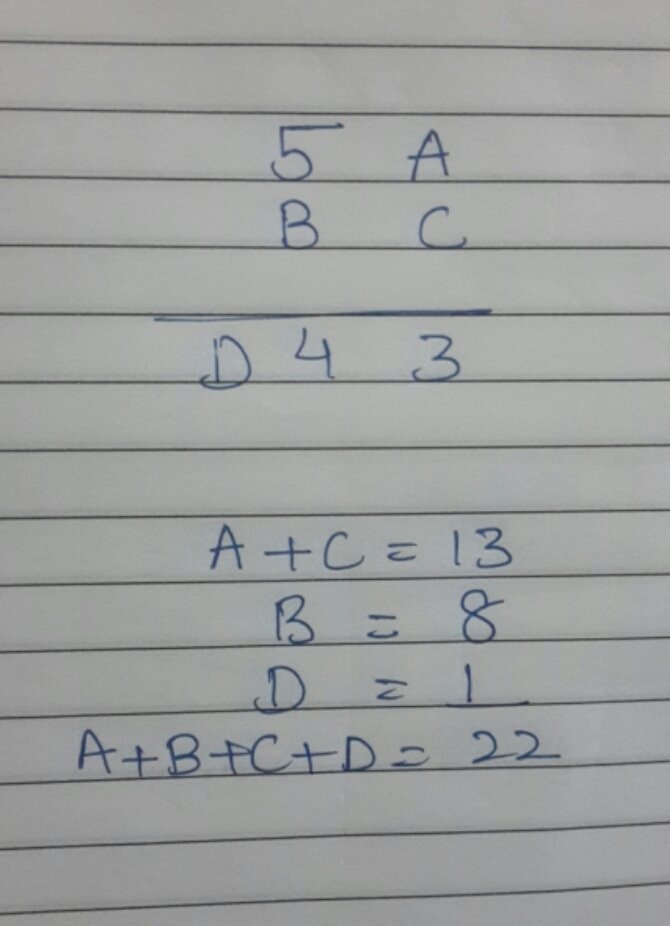 5 A
B C
D 4 3
A + C = 13
B = 8
D = 1
A+B+C+D = 22